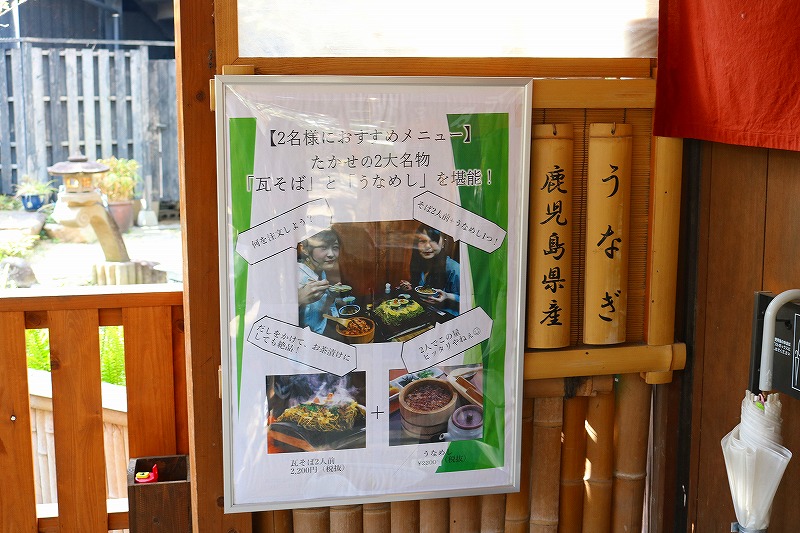 【2名様におすすめメニュー】
たかせの2大名物
「瓦そば」と「うなめし」を堪能！
何を注文しよう？
そば2人前+うなめし1つ！
だしをかけて、お茶漬けに
しても絶品！
2人でこの量
ピッタリやねぇ☺
+
瓦そば2人前
2,200円（税抜）
うなめし
¥2200（税抜）
うなぎ
鹿児島県産